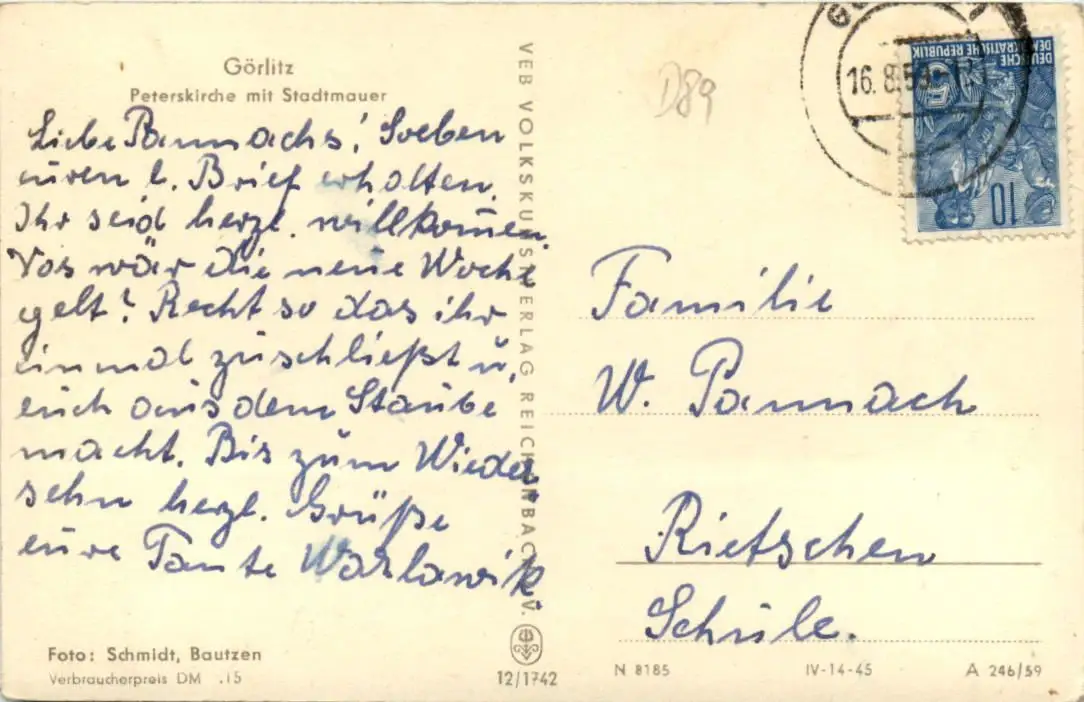 Görlitz
Peterskirche mit Stadtmauer
Liebe Pannachs! Soeben
euren l. Brief erholten.
Ihr seid herzl. willkom̄en.
Vos wär die neue Woche
gelt? Recht so das ihr
einmol zuschließt u.
euch aus dem Staube
macht. Bis zum Wieder
sehn herzl. Grüße
eure Tante Warlawik.
Foto: Schmidt, Bautzen
Verbraucherpreis DM .15
VEB VOLKSKUNSTVERLAG REICHENBACH I. V.
12/1742
D89
16.8.59
DEUTSCHE
DEMOKRATISCHE REPUBLIK
10
Familie
W. Pannach
Rietschen
Schule.
N 8185
IV-14-45
A 246/59